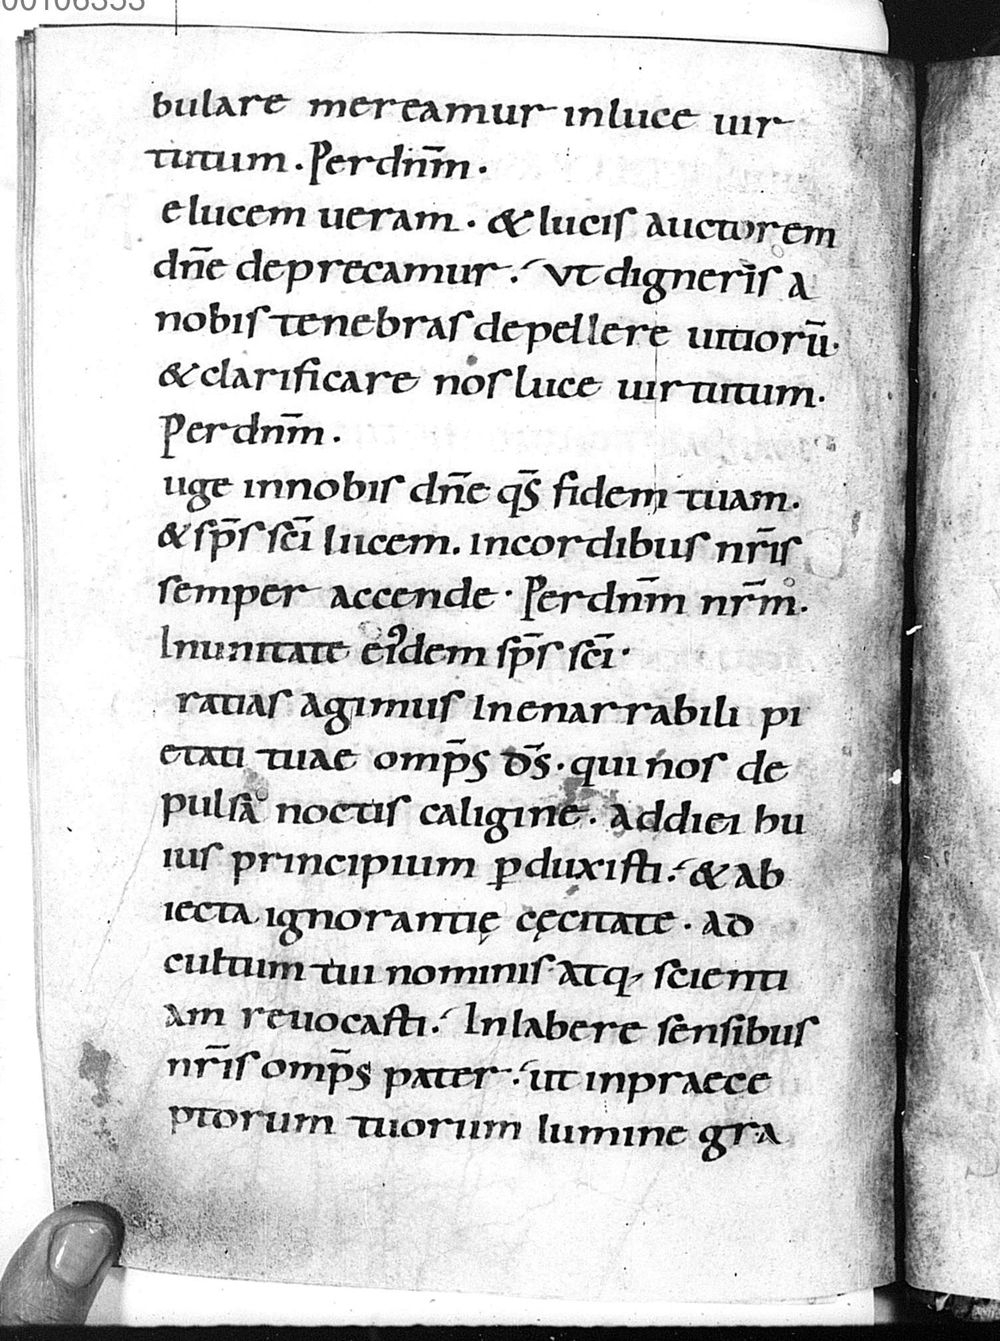 00106353
bulare mereamur inluce uir
tutum. Per dnm̄.
e lucem ueram. & lucis auctorem
dnē deprecamur. ut digneris a
nobis tenebras depellere uitiorū.
& clarificare nos luce uirtutum.
Per dnm̄.
uge innobis dnē qs̄ fidem tuam.
& sps̄ scī lucem. incordibus nr̄is
semper accende. Per dnm̄ nr̄m.
In unitate eiꝰdem sps̄ scī.
ratias agimus Inenarrabili pi
etati tuae omps̄ ds̄. qui nos de
pulsa noctis caligine. ad diei hu
ius principium ꝑduxisti. & ab
iecta ignorantię cęcitate. ad
cultum tui nominis atq, scienti
am reuocasti. Inlabere sensibus
nr̄is omps̄ pater. ut inpraece
ptorum tuorum lumine gra